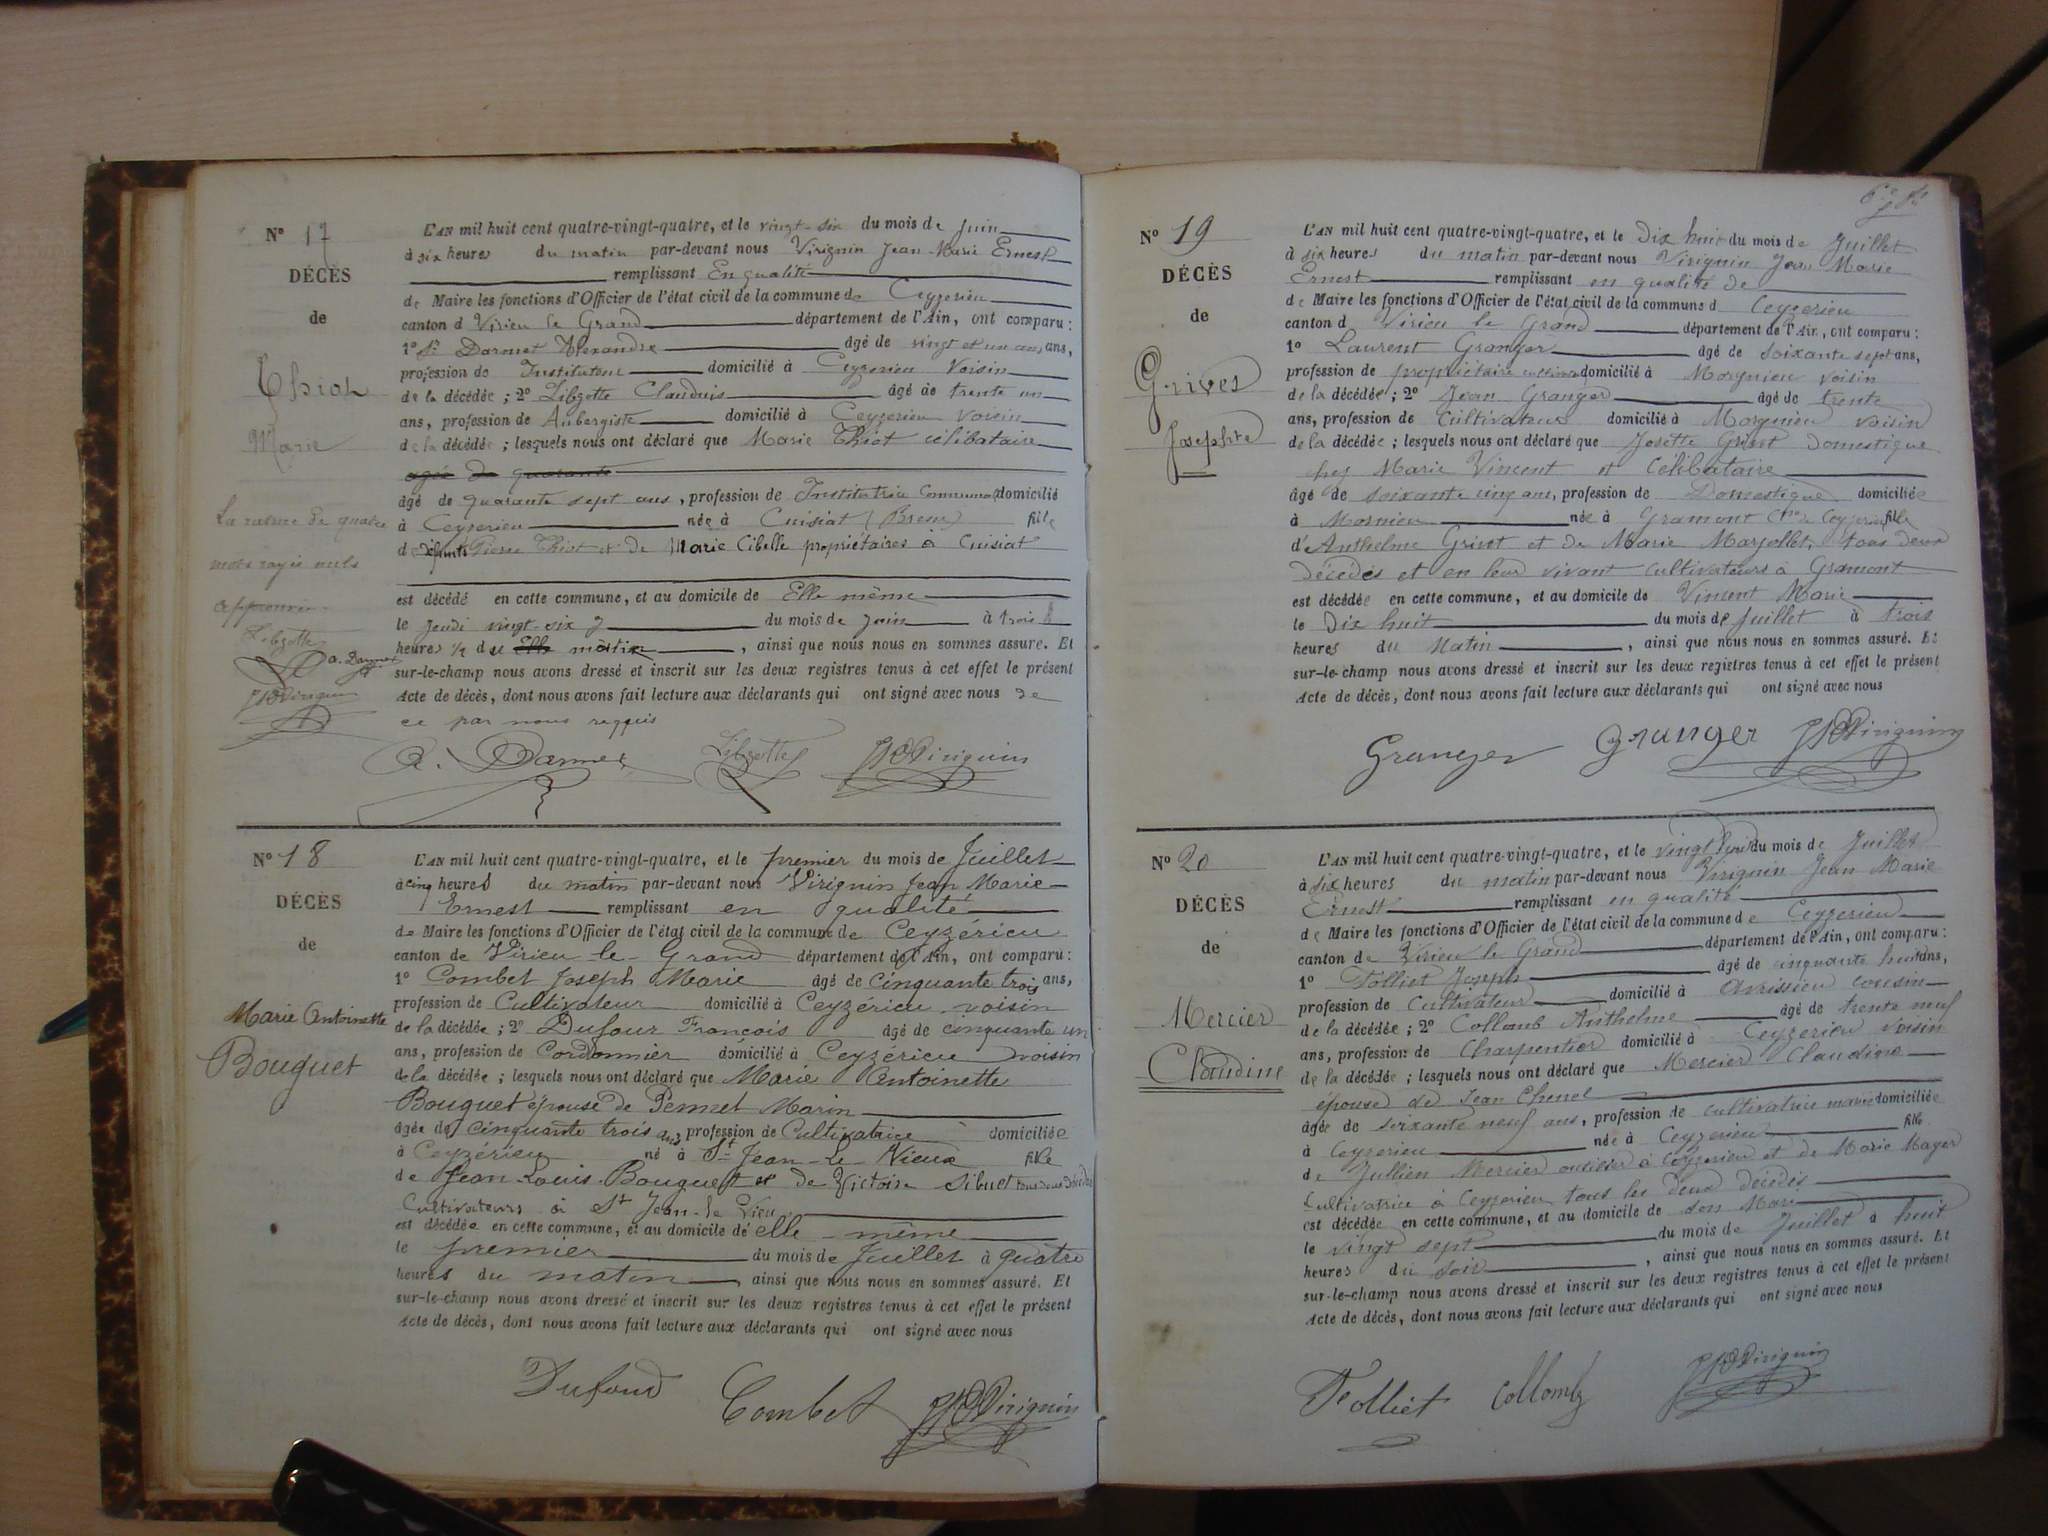 N° 17
DÉCÈS
de
Thiot
Marie
La rature de quatre
mots rayés nuls
approuvée
Libzotte
a. Darmet
JMEVirignin
L'AN mil huit cent quatre-vingt-quatre, et le vingt-six du mois de Juin
à six heures du matin par-devant nous Virignin Jean-Marie Ernest
remplissant En qualité
de Maire les fonctions d'Officier de l'état civil de la commune de Ceyzerieu
canton d Virieu le Grand département de l'Ain, ont comparu :
1° Sr Darmet Alexandre âgé de vingt et un ans, ans,
profession de Instituteur domicilié à Ceyzerieu Voisin
de la décédée ; 2° Libzotte Claudius âgé de trente un
ans, profession de Aubergiste domicilié à Ceyzerieu voisin
de la décédée ; lesquels nous ont déclaré que Marie Thiot célibataire
agée de quarante
âgé de quarante sept ans, profession de Institutrice Communale domicilié
à Ceyzerieu née à Cuisiat (Bresse) fille
d défunts Pierre Thiot et de Marie Cibelle propriétaires à Cuisiat
est décédé en cette commune, et au domicile de Elle même
le jeudi vingt-six du mois de juin à trois h
heures ½ du Elle matin, ainsi que nous nous en sommes assuré. Et
sur-le-champ nous avons dressé et inscrit sur les deux registres tenus à cet effet le présent
Acte de décès, dont nous avons fait lecture aux déclarants qui ont signé avec nous de
ce par nous requis
A. Darmet Libzotte JMEVirignin
N° 18
DÉCÈS
de
Marie Antoinette
Bouquet
L'AN mil huit cent quatre-vingt-quatre, et le premier du mois de Juillet
à cinq heures du matin par-devant nous Virignin Jean Marie
Ernest remplissant en qualité
de Maire les fonctions d'Officier de l'état civil de la commune de Ceyzérieu
canton de Virieu-le-Grand département de l'Ain, ont comparu :
1° Combet Joseph Marie âgé de cinquante trois ans,
profession de Cultivateur domicilié à Ceyzérieu voisin
de la décédée ; 2° Dufour François âgé de cinquante un
ans, profession de Cordonnier domicilié à Ceyzérieu voisin
de la décédée ; lesquels nous ont déclaré que Marie Antoinette
Bouquet épouse de Pennet Marin
âgée de cinquante trois ans, profession de Cultivatrice domiciliée
à Ceyzérieu né à St Jean-Le Vieux fille
de Jean Louis Bouquet et de Victoire Sibuet tous deux décédés
Cultivateurs à St Jean-le Vieu.
est décédée en cette commune, et au domicile de elle-même
le premier du mois de Juillet à quatre
heures du matin, ainsi que nous nous en sommes assuré. Et
sur-le-champ nous avons dressé et inscrit sur les deux registres tenus à cet effet le présent
Acte de décès, dont nous avons fait lecture aux déclarants qui ont signé avec nous
Dufour Combet JMEVirignin
N° 19
DÉCÈS
de
Grivet
Josephte
L'AN mil huit cent quatre-vingt-quatre, et le Dix huit du mois de Juillet
à six heures du matin par-devant nous Virignin Jean Marie
Ernest remplissant en qualité de
de Maire les fonctions d'Officier de l'état civil de la commune d Ceyzerieu
canton d Virieu le Grand département de l'Ain, ont comparu :
1° Laurent Granger âgé de soixante sept ans,
profession de propriétaire cultivateur domicilié à Morgnieu voisin
de la décédée ; 2° Jean Granger âgé de trente
ans, profession de Cultivateur domicilié à Morgnieu voisin
de la décédée ; lesquels nous ont déclaré que Josette Grivet Domestique
chez Marie Vincent et Célibataire
âgé de soixante cinq ans, profession de Domestique domiciliée
à Mornieu née à Gramont Cne de Ceyzerieu fille
d'Anthelme Grivet et de Marie Marjollet, tous deux
décedés et en leur vivant cultivateurs à Gramont
est décédée en cette commune, et au domicile de Vincent Marie
le Dix huit du mois de Juillet à trois
heures du Matin, ainsi que nous nous en sommes assuré. Et
sur-le-champ nous avons dressé et inscrit sur les deux registres tenus à cet effet le présent
Acte de décès, dont nous avons fait lecture aux déclarants qui ont signé avec nous
Granger Granger JMEVirignin
N° 20
DÉCÈS
de
Mercier
Claudine
L'AN mil huit cent quatre-vingt-quatre, et le vingt huit du mois de Juillet
à six heures du matin par-devant nous Virignin Jean Marie
Ernest remplissant en qualité
de Maire les fonctions d'Officier de l'état civil de la commune de Ceyzerieu
canton de Virieu le Grand département de l'Ain, ont comparu :
1° Folliet Joseph âgé de cinquante huit ans,
profession de Cultivateur domicilié à Avrissieu cousin
de la décédée ; 2° Collomb Anthelme âgé de trente neuf
ans, profession de Charpentier domicilié à Ceyzerieu voisin
de la décédée ; lesquels nous ont déclaré que Mercier Claudine
épouse de Jean Chenel
âgée de soixante neuf ans, profession de cultivatrice domiciliée
à Ceyzerieu née à Ceyzerieu fille
de Jullien Mercier à Ceyzerieu et de Marie Mayer
Cultivatrice à Ceyzerieu tous les deux décédés
est décédée en cette commune, et au domicile de son Mari
le vingt sept du mois de Juillet à huit
heures du soir, ainsi que nous nous en sommes assuré. Et
sur-le-champ nous avons dressé et inscrit sur les deux registres tenus à cet effet le présent
Acte de décès, dont nous avons fait lecture aux déclarants qui ont signé avec nous
Folliet Collomb JMEVirignin